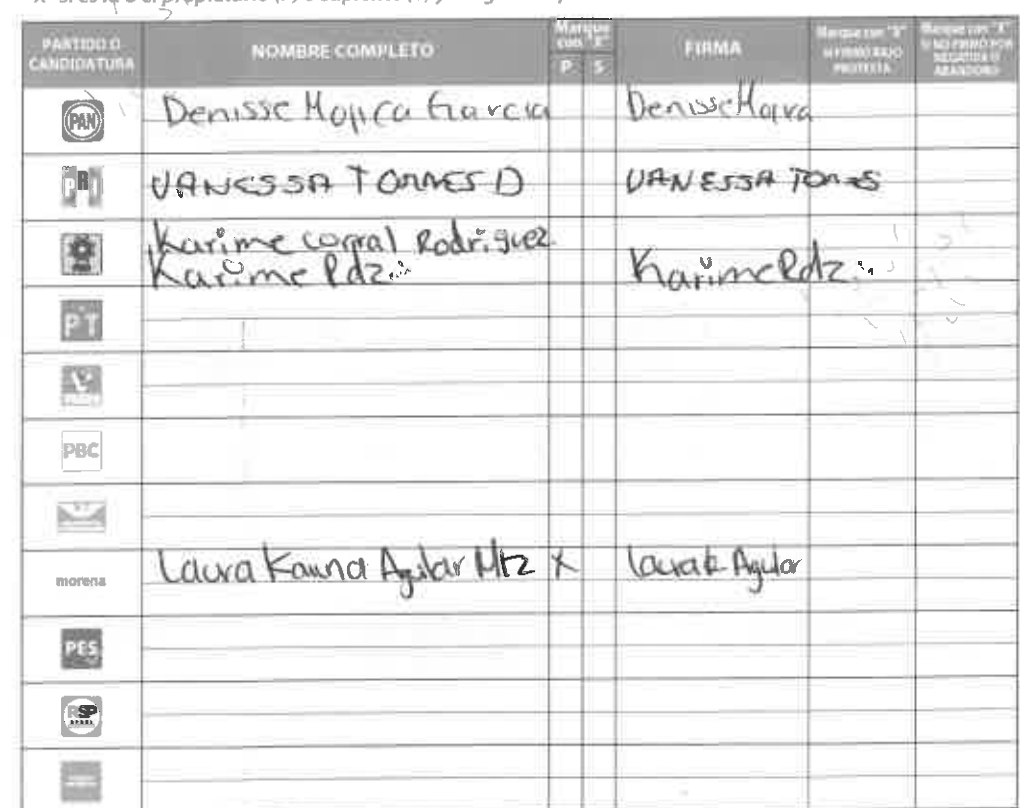 PARTIDO O
CANDIDATURA
NOMBRE COMPLETO
Marque
con "X"
P S
FIRMA
Marque con "X"
SI FIRMÓ BAJO
PROTESTA
Marque con "X"
SI NO FIRMÓ POR
NEGATIVA O
ABANDONO
PAN
Denisse Mojica Garcia
Denisse Mojica
PRI
VANESSA TORRES D
VANESSA TORRES
Karime corral Rodriguez
Karime Rdz
Karime Rdz
PT
PBC
morena
Laura Karina Aguilar Mtz X
Laura k Aguilar
PES
RSP